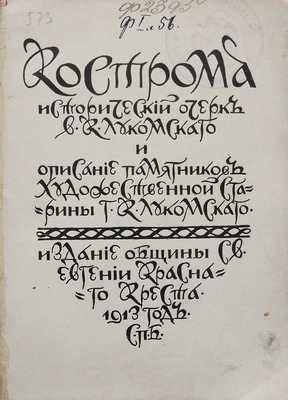 573
ф2395
ФI.л 56.
Кострома
историческiй очеркъ
В.К.Лукомскаго
и
описанiе памятниковъ
художественной ста-
рины Г.К.Лукомскаго.
изданiе общины св.
евгенiи красна-
го креста.
1913 годъ.
С.П.Б.